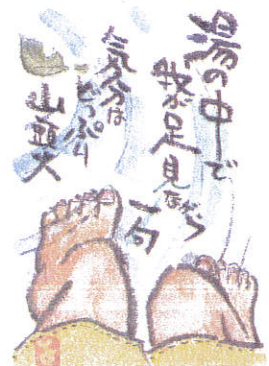 湯の中で
我が足見ながら
一句
気分は
どっぷり
山頭火